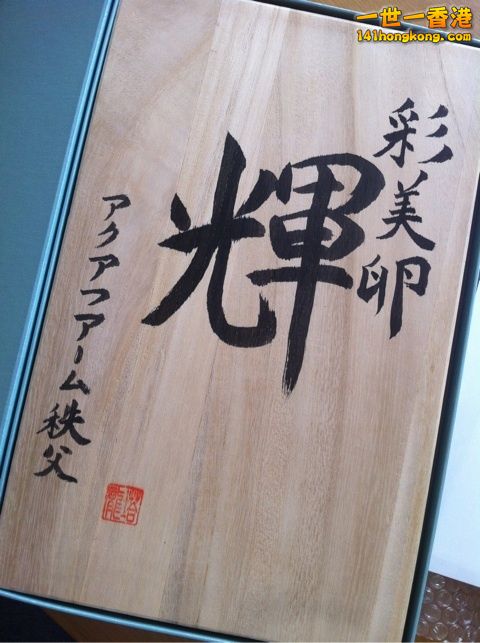 一世一香港
141hongkong.com
彩美卵
輝
アクアファーム秩父